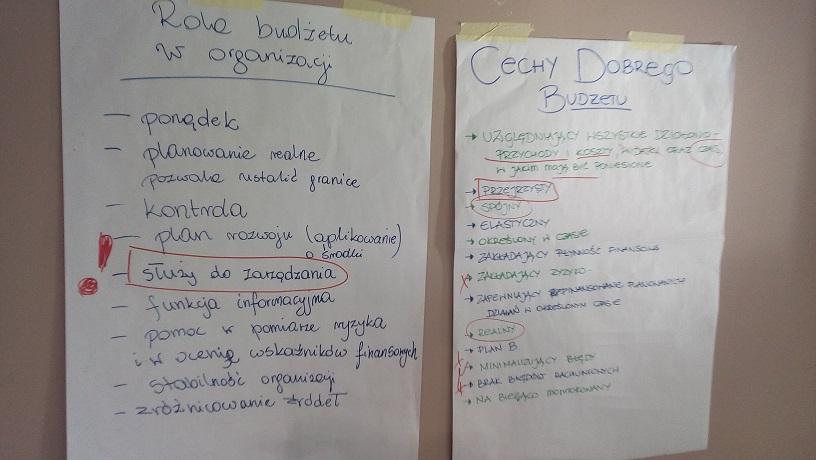 Rola budżetu
w organizacji
— porządek
— planowanie realne
pozwala ustalić granice
— kontrola
— plan rozwoju (aplikowanie)
o środki
— służy do zarządzania
— funkcja informacyjna
— pomoc w pomiarze ryzyka
i w ocenie wskaźników finansowych
— stabilność organizacji
— zróżnicowanie źródeł
CECHY DOBREGO
BUDŻETU
→ UWZGLĘDNIAJĄCY WSZYSTKIE
PRZYCHODY I KOSZTY ORAZ CZAS
W JAKIM MAJĄ BYĆ PONIESIONE
→ PRZEJRZYSTY
→ SPÓJNY
→ ELASTYCZNY
→ OKREŚLONY W CZASIE
→ ZAKŁADAJĄCY PŁYNNOŚĆ FINANSOWĄ
→ ZAKŁADAJĄCY RYZYKO
→ ZAPEWNIAJĄCY PLANOWANYCH
DZIAŁAŃ W OKREŚLONYM CZASIE
→ REALNY
→ PLAN B
→ MINIMALIZUJĄCY BŁĘDY
→ BRAK BŁĘDÓW RACHUNKOWYCH
→ NA BIEŻĄCO MONITOROWANY